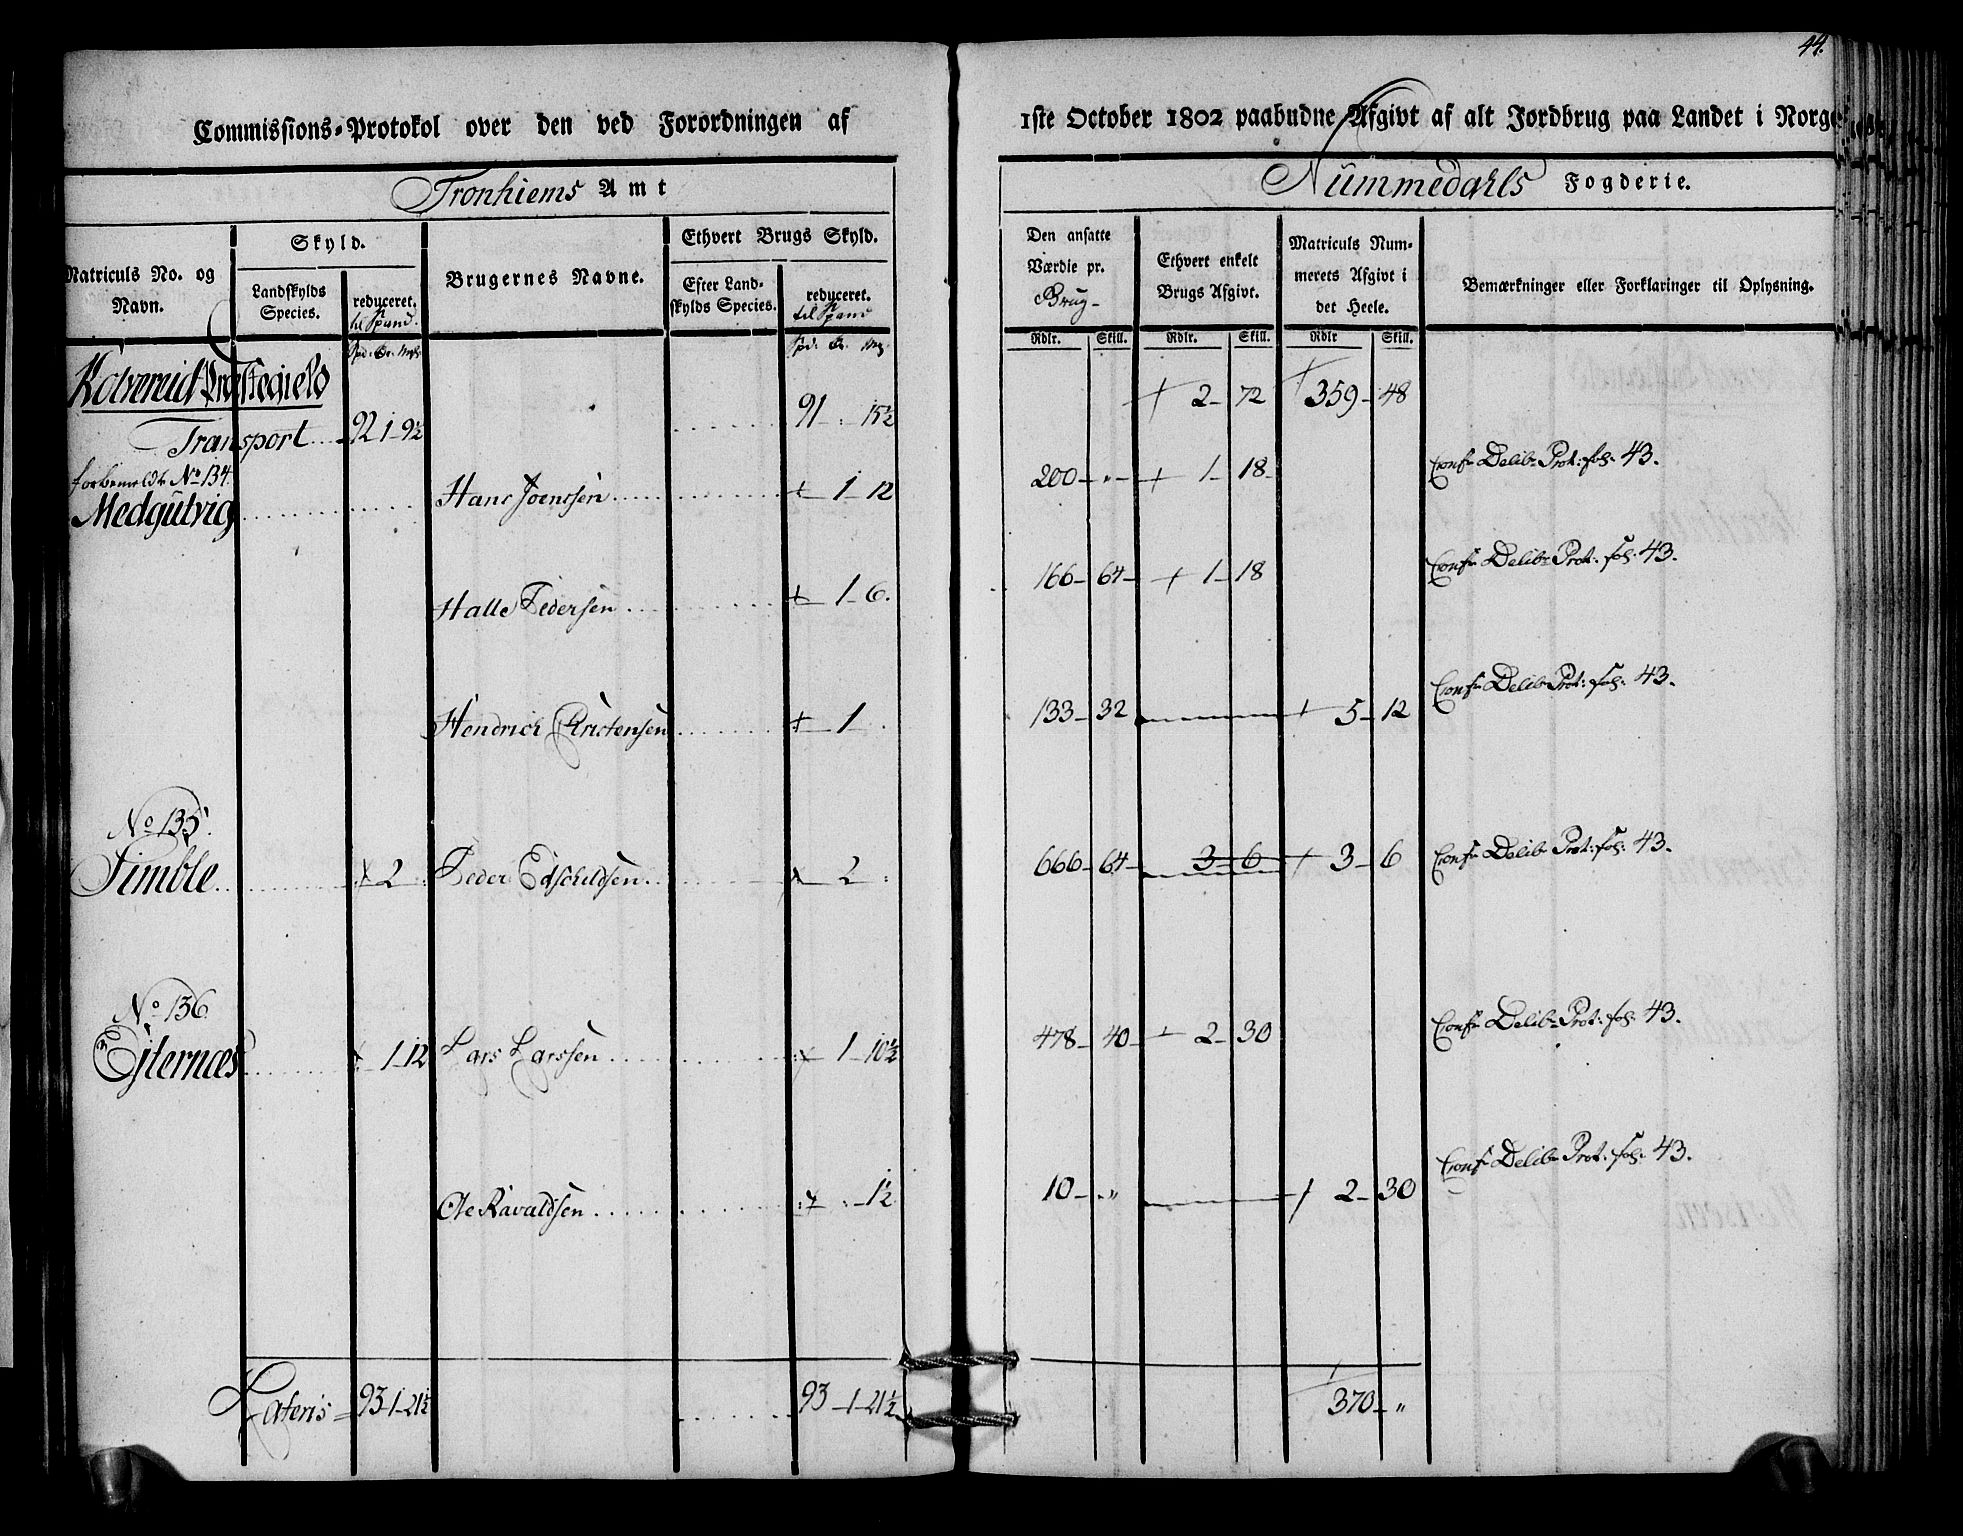 44.
Commissions-Protokol over den ved Forordningen af 1ste October 1802 paabudne Afgivt af alt Jordbrug paa Landet i Norge
Tronhiems Amt
Nummedahls Fogderie.
Matriculs No. og Navn.
Skyld.
Landskylds Species.
reduceret. til Spand.
Brugernes Navne.
Ethvert Brugs Skyld.
Efter Landskylds Species.
reduceret. til Spand
Den ansatte Værdie pr. Brug-
Ethvert enkelt Brugs Afgivt.
Matriculs Nummerets Afgivt i det Heele.
Bemærkninger eller Forklaringer til Oplysning.
Rdlr. Skill. Rdlr. Skill. Rdlr Skill.
Kolvereid Præstegield
Transport 92 1 9½ 91 . 15½ + 2 72 + 359 48
forbemeldte No 134.
Medgulvig Hans Joenssen + 1 12 200 " + 1 18 Conf Delib Prot: fol: 43.
Halle Pedersen + 1 6. 166 64 + 1 18 Conf Delib Prot: fol: 43.
Hendrich Christensen + 1 133 32 + 5 12 Conf Delib Prot: fol: 43.
No 135.
Simble + 2 Peder Edschildsen + 2 666 64 3 6 + 3 6 Conf Delib Prot: fol: 43.
No 136
Eiternæs + 1 12 Lars Larssen + 1 10½ 478 40 + 2 30 Conf Delib Prot: fol: 43.
Ole Ravaldsen + 1½ 10 " + 2 30 Conf Delib Prot: fol: 43.
Lateris 93 1 21½ 93 1 21½ 370 "